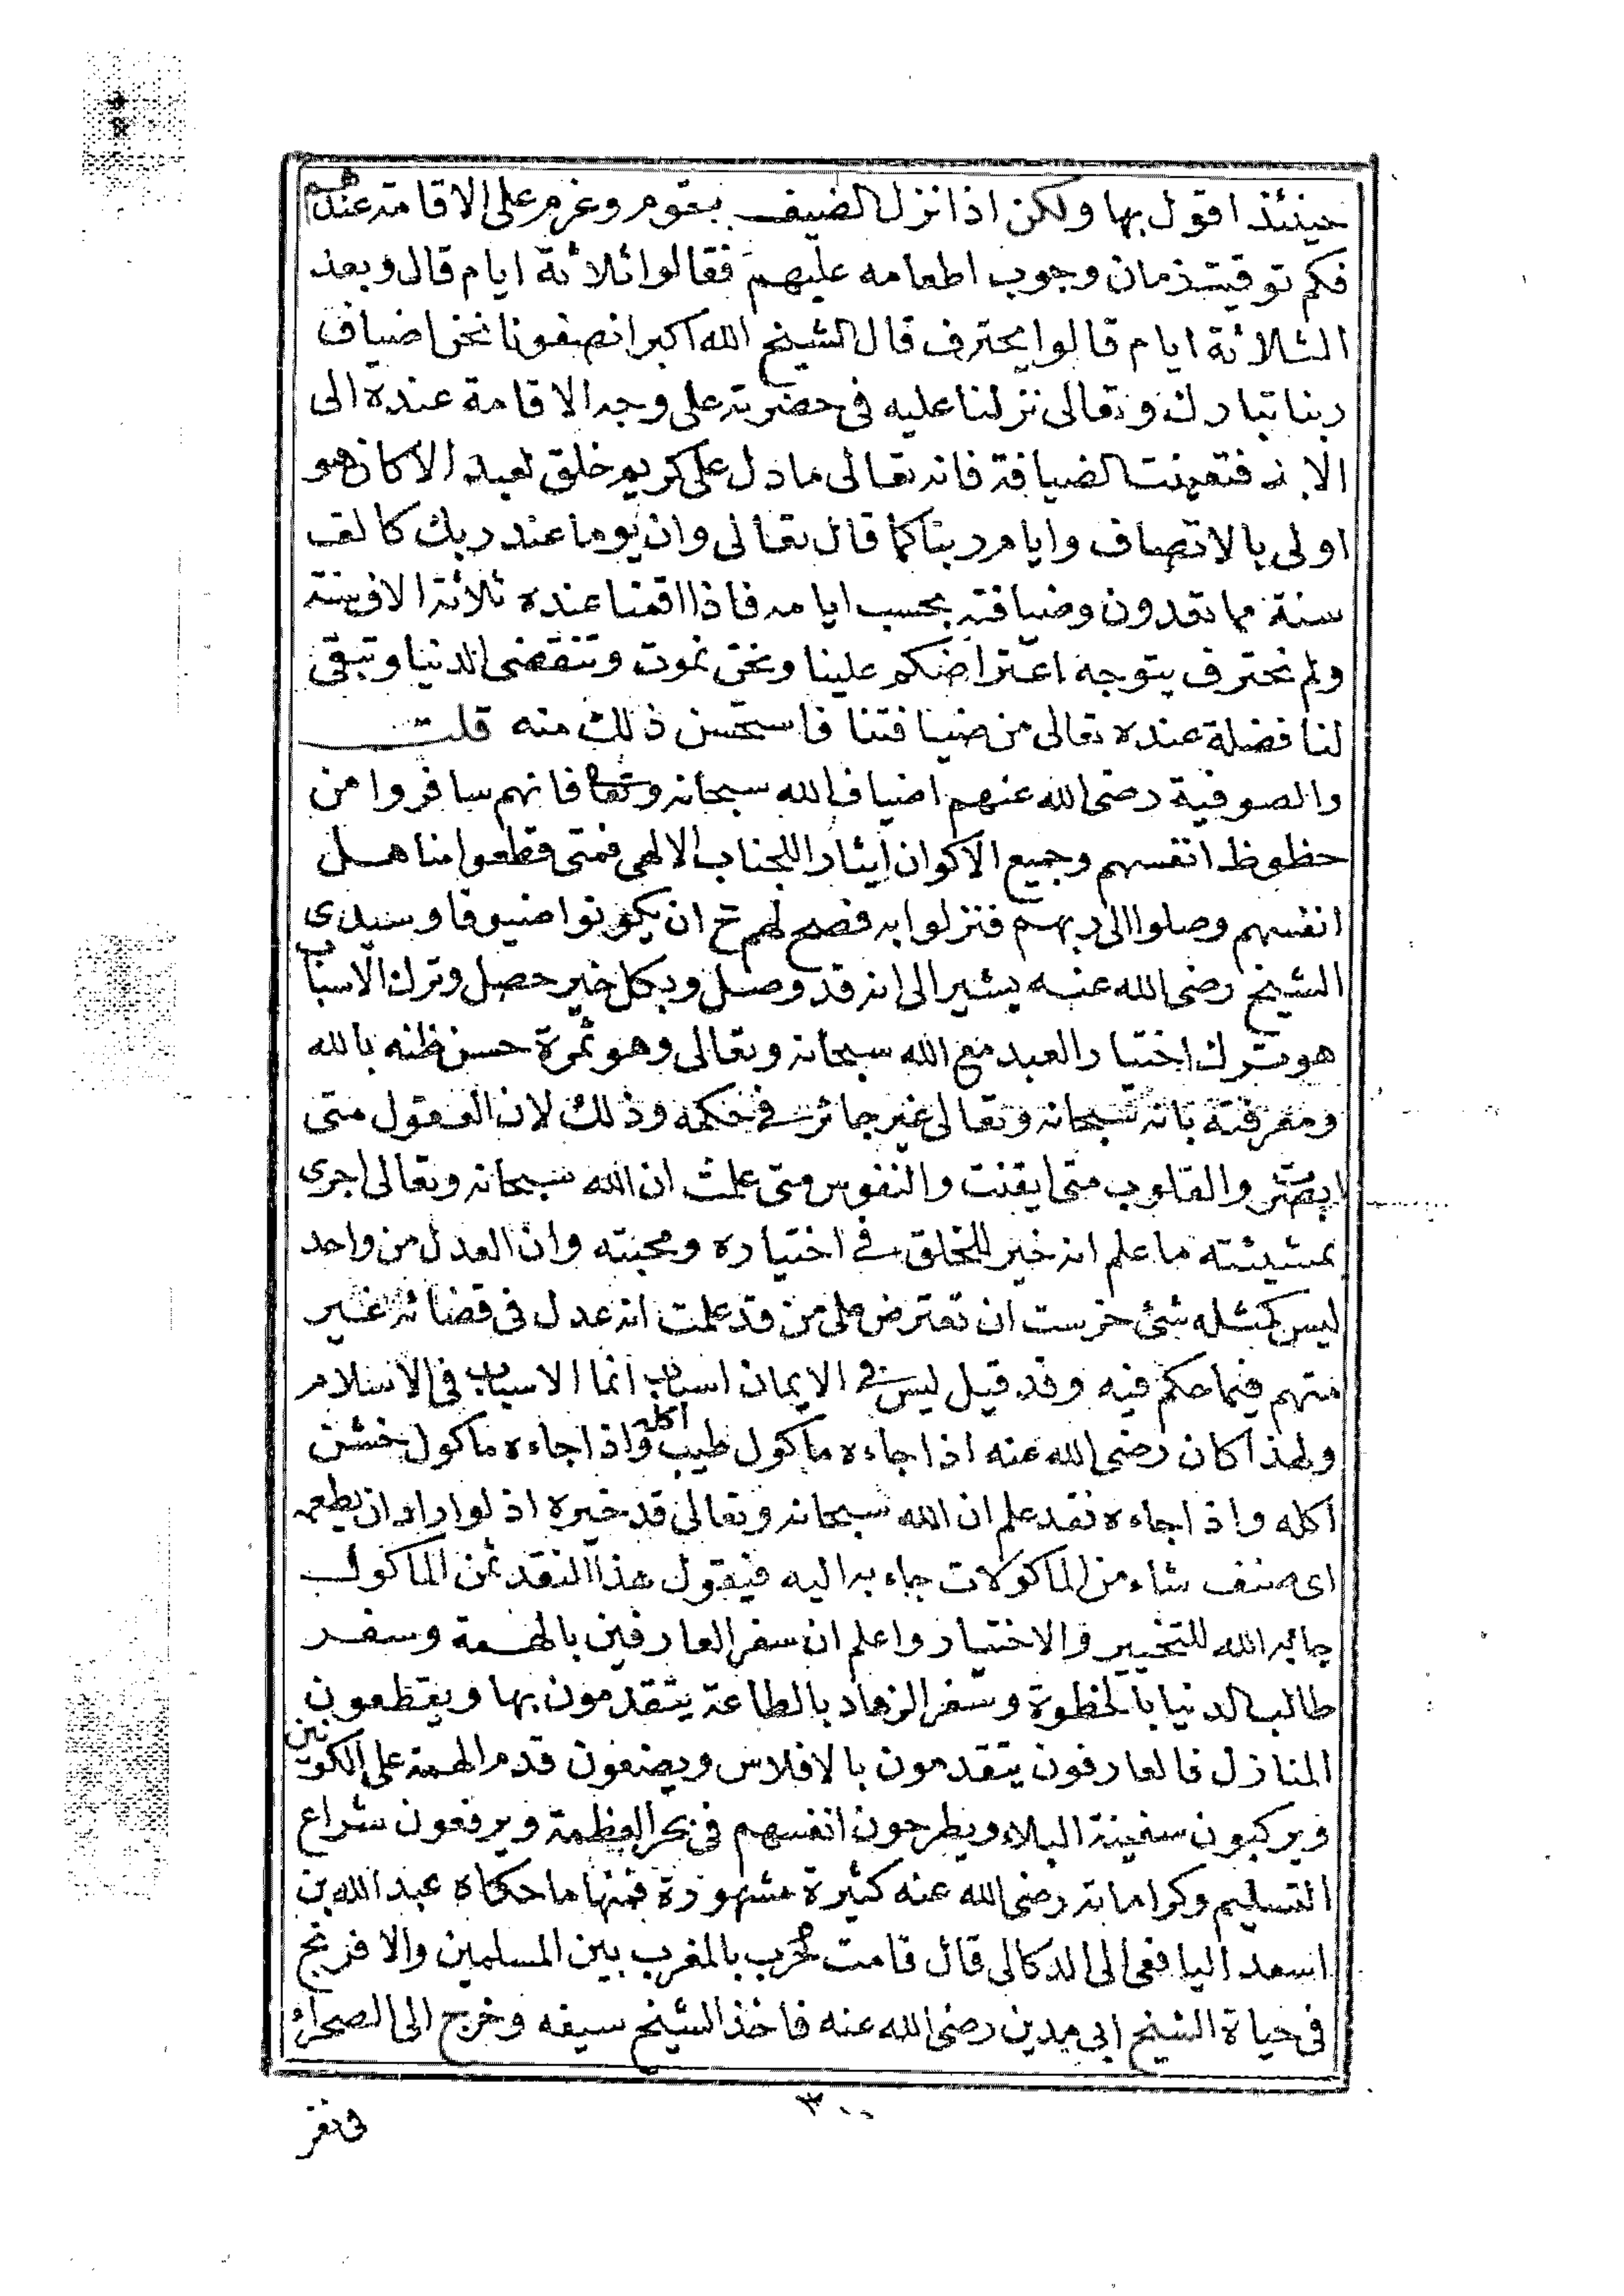 حينئذ اقول بها ولكن اذا نزل الضيف بقوم وغرم على الاقامة عندهم
فكم توقيت زمان وجوب اطعامه عليهم فقالوا ثلاثة ايام قال وبعد
الثلاثة ايام قالوا يحترف قال الشيخ الله اكبر انصفونا نحن اضياف
ربنا تبارك وتعالى نزلنا عليه فى حضرته على وجه الاقامة عنده الى
الابد فتعينت الضيافة فانه تعالى ما دل على كريم خلق لعبد الا كان هو
اولى بالاتصاف وايام ربنا كما قال تعالى وان يوما عند ربك كالف
سنة مما تعدون وضيافته بحسب ايامه فاذا اقمنا عنده ثلاثة الاف سنة
ولم نحترف يتوجه اعتراضكم علينا ونحن نموت وتنقضى الدنيا وتبقى
لنا فضلة عنده تعالى من ضيافتنا فاستحسن ذلك منه قلت
والصوفية رضى الله عنهم اضياف الله سبحانه وتعا فانهم سافروا من
حظوظ انفسهم وجميع الاكوان ايثارا للجناب الالهى فمتى قطعوا مناهل
انفسهم وصلوا الى ربهم فنزلوا به فصح لهم ح ان يكونوا ضيوفا وسيدى
الشيخ رضى الله عنه يشير الى انه قد وصل وبكل خير حصل وترك الاسباب
هو ترك اختيار العبد مع الله سبحانه وتعالى وهو ثمرة حسن ظنه بالله
ومعرفته بانه سبحانه وتعالى غير جائر فى حكمه وذلك لان العقول متى
ابصرت والقلوب متى ايقنت والنفوس متى علمت ان الله سبحانه وتعالى اجرى
بمشيئته ما علم انه خير للخلق فى اختياره ومحبته وان العدل من واحد
ليس كمثله شئ خرست ان تعترض على من قد علمت انه عدل فى قضائه غير
متهم فيما حكم فيه وقد قيل ليس فى الايمان اسباب انما الاسباب فى الاسلام
ولهذا كان رضى الله عنه اذا جاءه ماكول طيب اكله واذا جاءه ماكول خشن
اكله واذا جاءه نقد علم ان الله سبحانه وتعالى قد خيره اذ لو اراد ان يطعمه
اى صنف شاء من الماكولات جاء به اليه فيقول هذا النقد ثمن الماكول
جا به الله للتخيير والاختيار واعلم ان سفر العارفين بالهمة وسفر
طالب الدنيا بالخطوة وسفر الزهاد بالطاعة يتقدمون بها ويقطعون
المنازل فالعارفون يتقدمون بالافلاس ويضعون قدم الهمة على الكونين
ويركبون سفينة البلاء ويطرحون انفسهم فى بحر العظمة ويرفعون شراع
التسليم وكراماته رضى الله عنه كثيرة مشهورة فمنها ما حكاه عبد الله بن
اسعد اليافعى الى الدكالى قال قامت حرب بالمغرب بين المسلمين والافرنج
فى حياة الشيخ ابى مدين رضى الله عنه فاخذ الشيخ سيفه وخرج الى الصحراء
٣٠٠
فى نفر